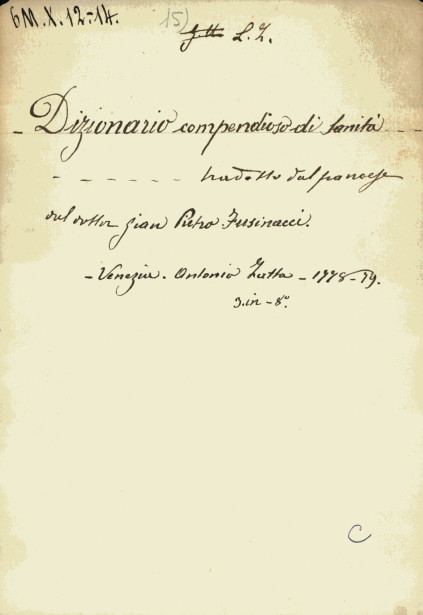 6M.X.12-14. 15)
L. Z.
Dizionario compendioso di sanità
tradotto dal francese
dal dottor Gian Pietro Fusinacci.
- Venezia. Antonio Zatta - 1778-79.
3. in - 8°.
C